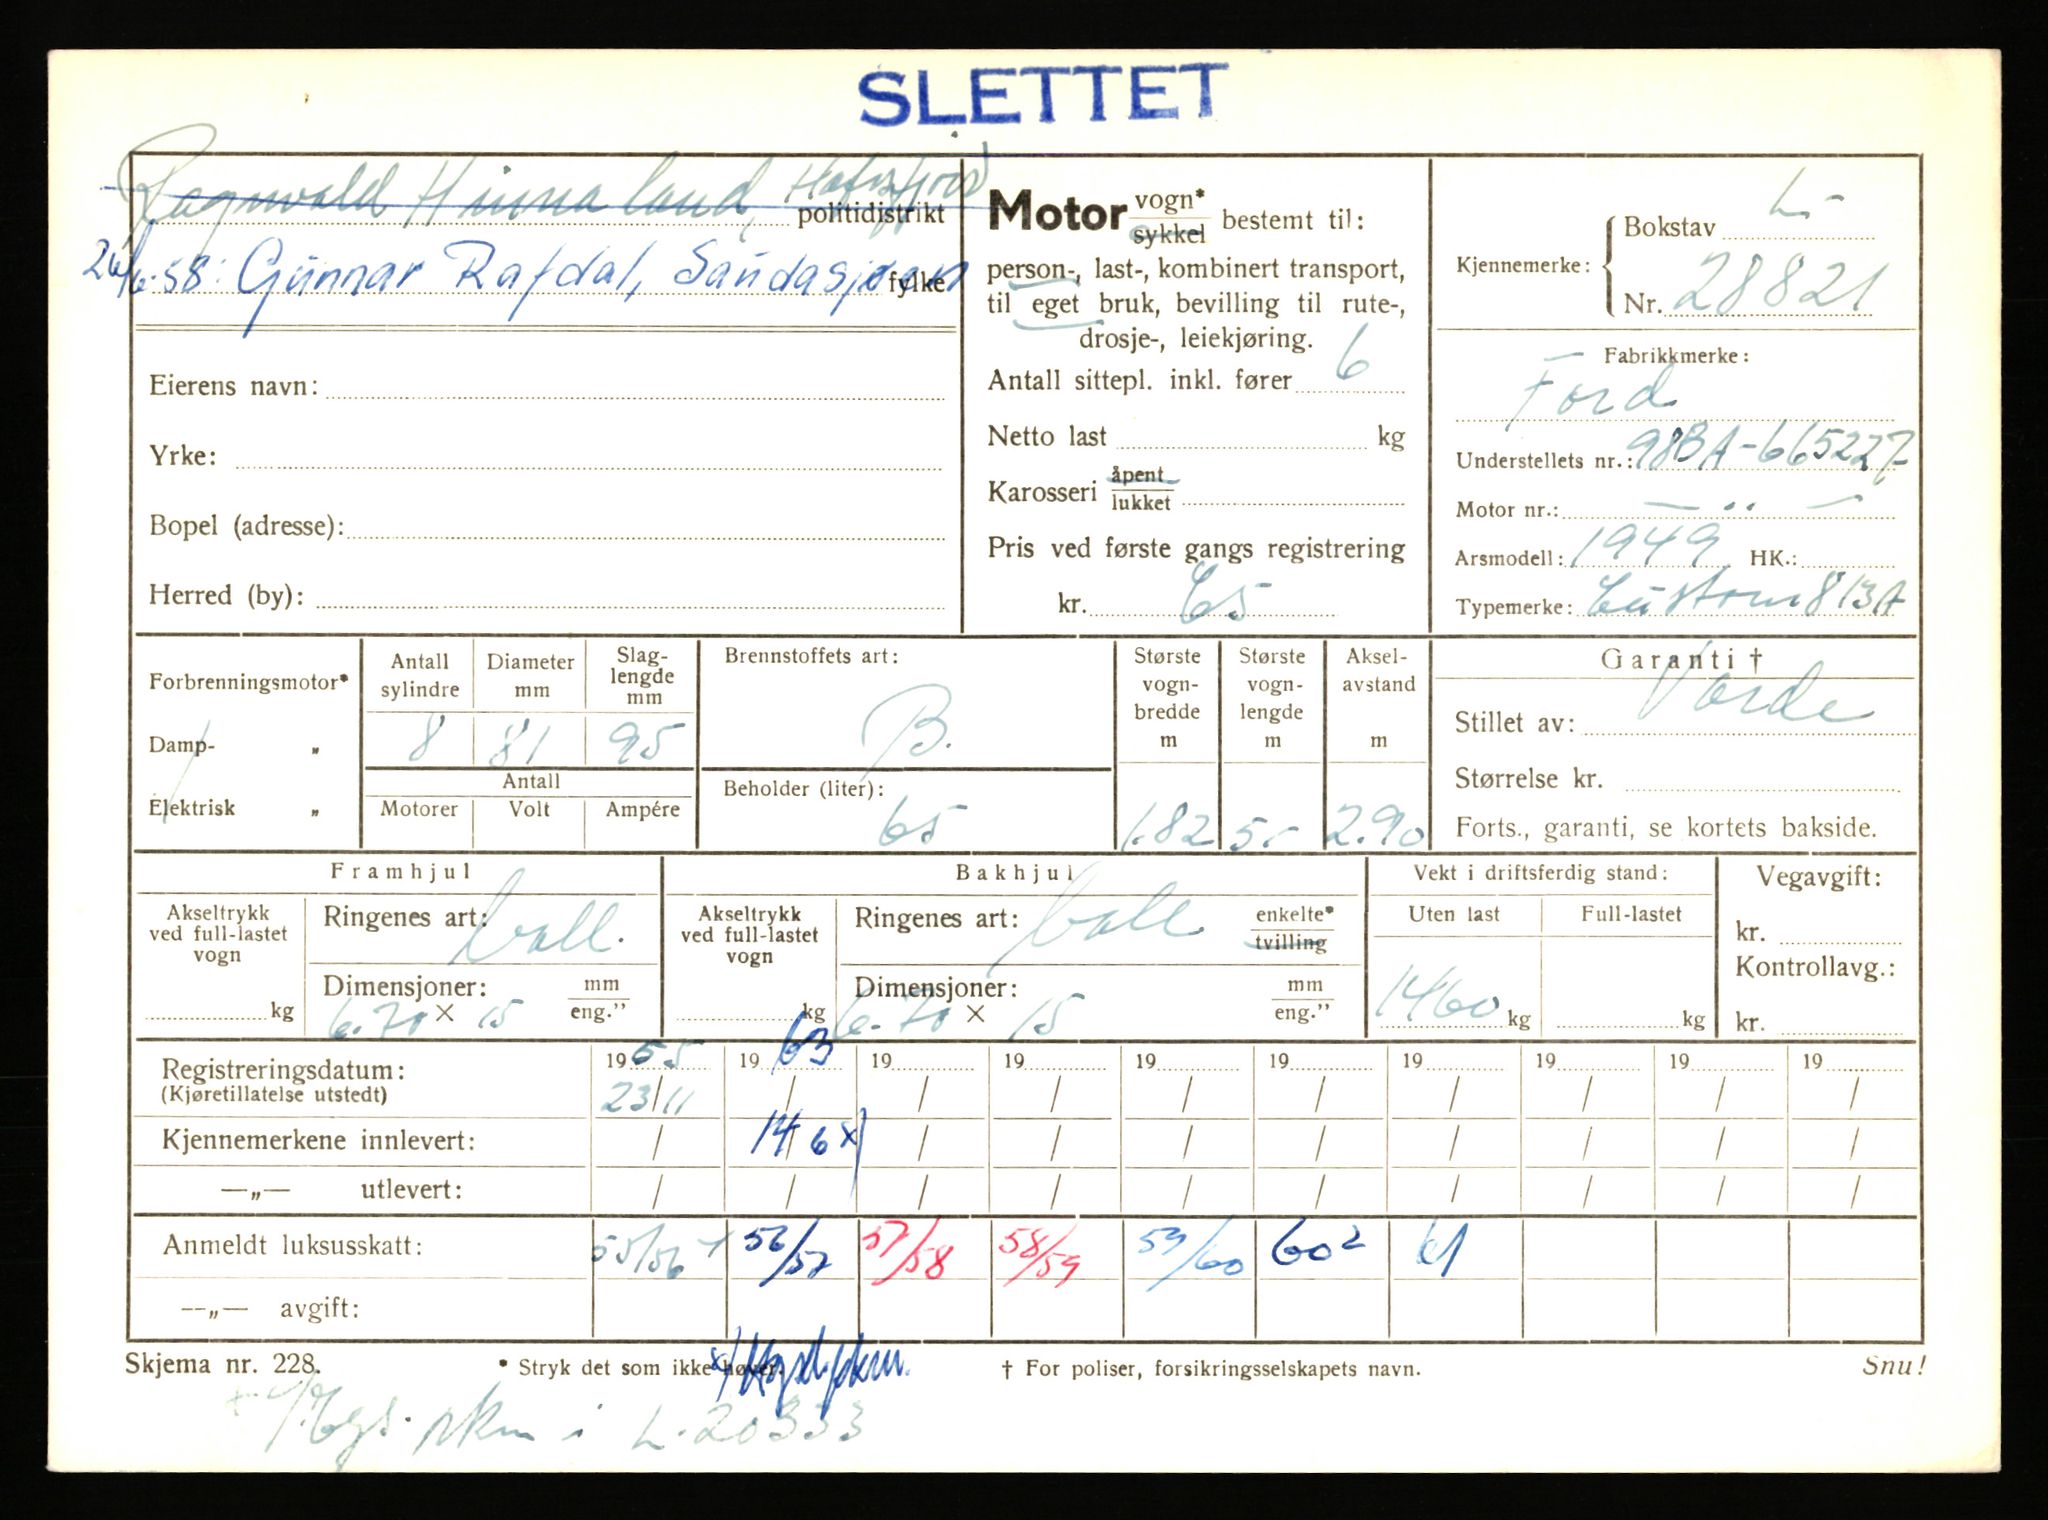 SLETTET
Ragnvald Hinnaland, Hafrsfjord
politidistrikt
26/6-58: Gunnar Rafdal, Saudasjøen
fylke
Eierens navn:
Yrke:
Bopel (adresse):
Herred (by):
Motor vogn* sykkel bestemt til:
person-, last-, kombinert transport,
til eget bruk, bevilling til rute-,
drosje-, leiekjøring.
Antall sittepl. inkl. fører 6
Netto last kg
Karosseri åpent lukket
Pris ved første gangs registrering
kr. 65
Kjennemerke: Bokstav L-
Nr. 28821
Fabrikkmerke:
Ford
Understellets nr.: 98BA-665227
Motor nr.: — „ —
Arsmodell: 1949 HK.:
Typemerke: Custom 8 13A
Forbrenningsmotor*
Damp- „
Elektrisk „
Antall sylindre
8
Diameter mm
81
Slag-lengde mm
95
Antall
Motorer Volt Ampére
Brennstoffets art:
B.
Beholder (liter):
65
Største vogn-bredde m
1.82
Største vogn-lengde m
5.-
Aksel-avstand m
2.90
Garanti †
Stillet av: Vorde
Størrelse kr.
Forts., garanti, se kortets bakside.
Framhjul
Akseltrykk ved full-lastet vogn
kg
Ringenes art: ball.
Dimensjoner: mm eng."
6.70 × 15
Bakhjul
Akseltrykk ved full-lastet vogn
kg
Ringenes art: ball enkelte* tvilling
Dimensjoner: mm eng."
6.70 × 15
Vekt i driftsferdig stand:
Uten last Full-lastet
1460 kg kg
Vegavgift:
kr.
Kontrollavg.:
kr.
Registreringsdatum: 1955 1963 19 19 19 19 19 19 19 19
(Kjøretillatelse utstedt) 23/11 / / / / / / / / /
Kjennemerkene innlevert: / 14/6 x / / / / / / / /
—„— utlevert: / / / / / / / / / /
Anmeldt luksusskatt: 55/56 + 56/57 57/58 58/59 59/60 60² 61
—„— avgift:
Skjema nr. 228. * Stryk det som ikke høver. † For poliser, forsikringsselskapets navn. Snu!
skm i L-20333